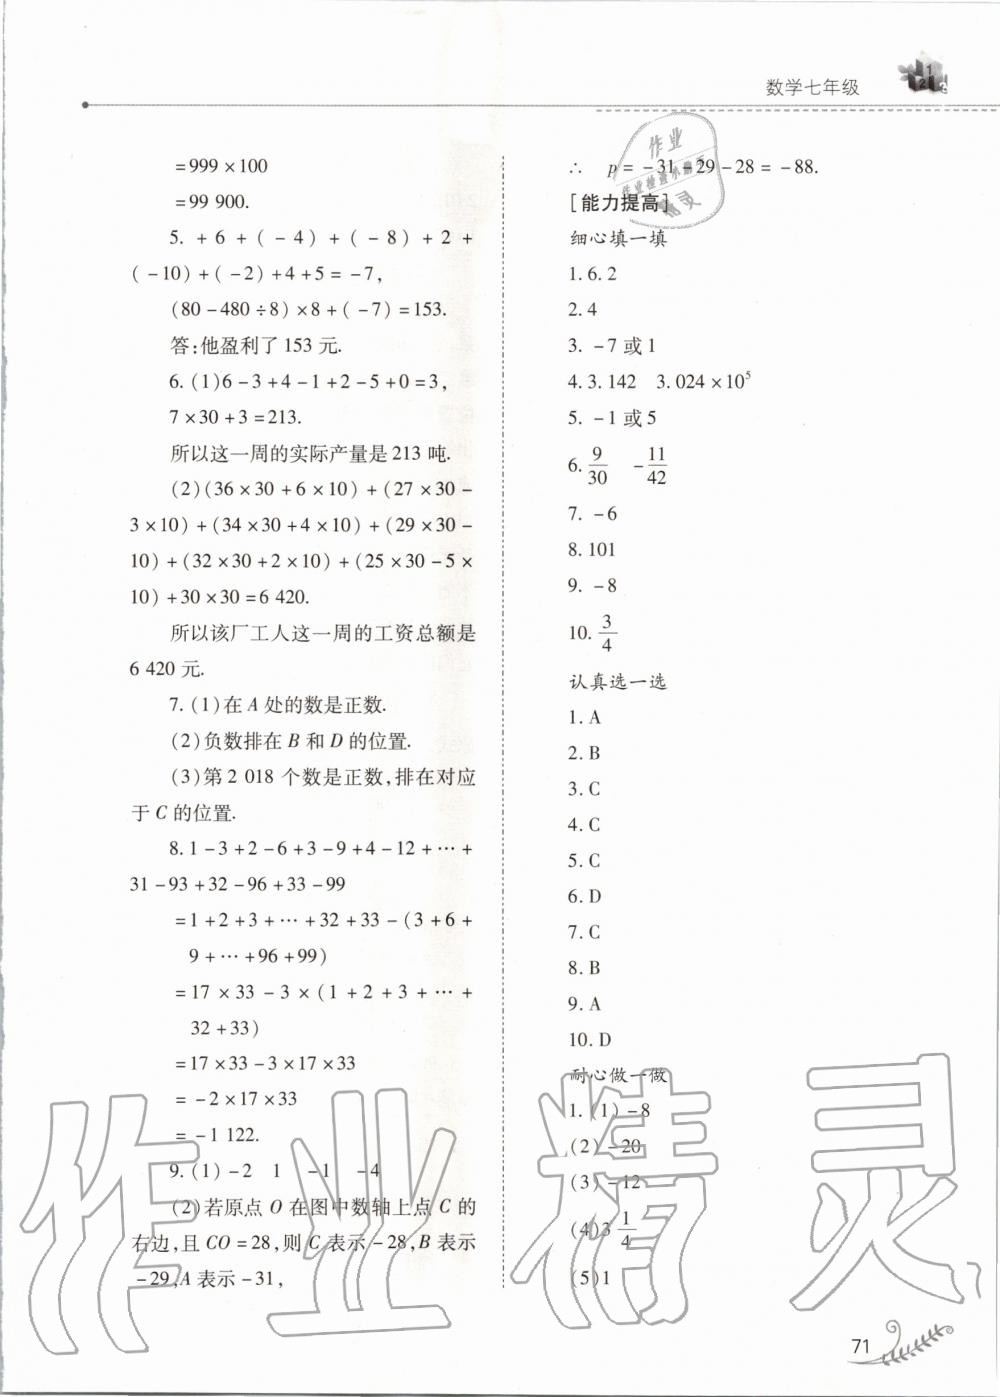 数学七年级
=999×100
=99 900.
5. +6+(-4)+(-8)+2+
(-10)+(-2)+4+5=-7,
(80-480÷8)×8+(-7)=153.
答:他盈利了153元.
6.(1)6-3+4-1+2-5+0=3,
7×30+3=213.
所以这一周的实际产量是213吨.
(2)(36×30+6×10)+(27×30-
3×10)+(34×30+4×10)+(29×30-
10)+(32×30+2×10)+(25×30-5×
10)+30×30=6 420.
所以该厂工人这一周的工资总额是
6 420元.
7.(1)在A处的数是正数.
(2)负数排在B和D的位置.
(3)第2 018个数是正数,排在对应
于C的位置.
8.1-3+2-6+3-9+4-12+…+
31-93+32-96+33-99
=1+2+3+…+32+33-(3+6+
9+…+96+99)
=17×33-3×(1+2+3+…+
32+33)
=17×33-3×17×33
=-2×17×33
=-1 122.
9.(1)-2 1 -1 -4
(2)若原点O在图中数轴上点C的
右边,且CO=28,则C表示-28,B表示
-29,A表示-31,
∴ p=-31-29-28=-88.
[能力提高]
细心填一填
1.6.2
2.4
3.-7或1
4.3.142 3.024×10⁵
5.-1或5
6. 9/30 -11/42
7.-6
8.101
9.-8
10. 3/4
认真选一选
1.A
2.B
3.C
4.C
5.C
6.D
7.C
8.B
9.A
10.D
耐心做一做
1.(1)-8
(2)-20
(3)-12
(4)3 1/4
(5)1
71
作业精灵
作业
精灵